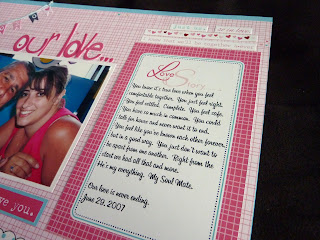 our love...
Love Story
You know it's true love when you feel
comfortable together. You just feel right.
You feel settled. Complete. You feel safe.
You have so much in common. You could
talk for hours and never want it to end.
You feel like you've known each other forever,
but in a good way. You just don't want to
be apart from one another. Right from the
start we had all that and more.
He's my everything. My Soul Mate.
Our love is never ending.
June 29, 2007
love you.